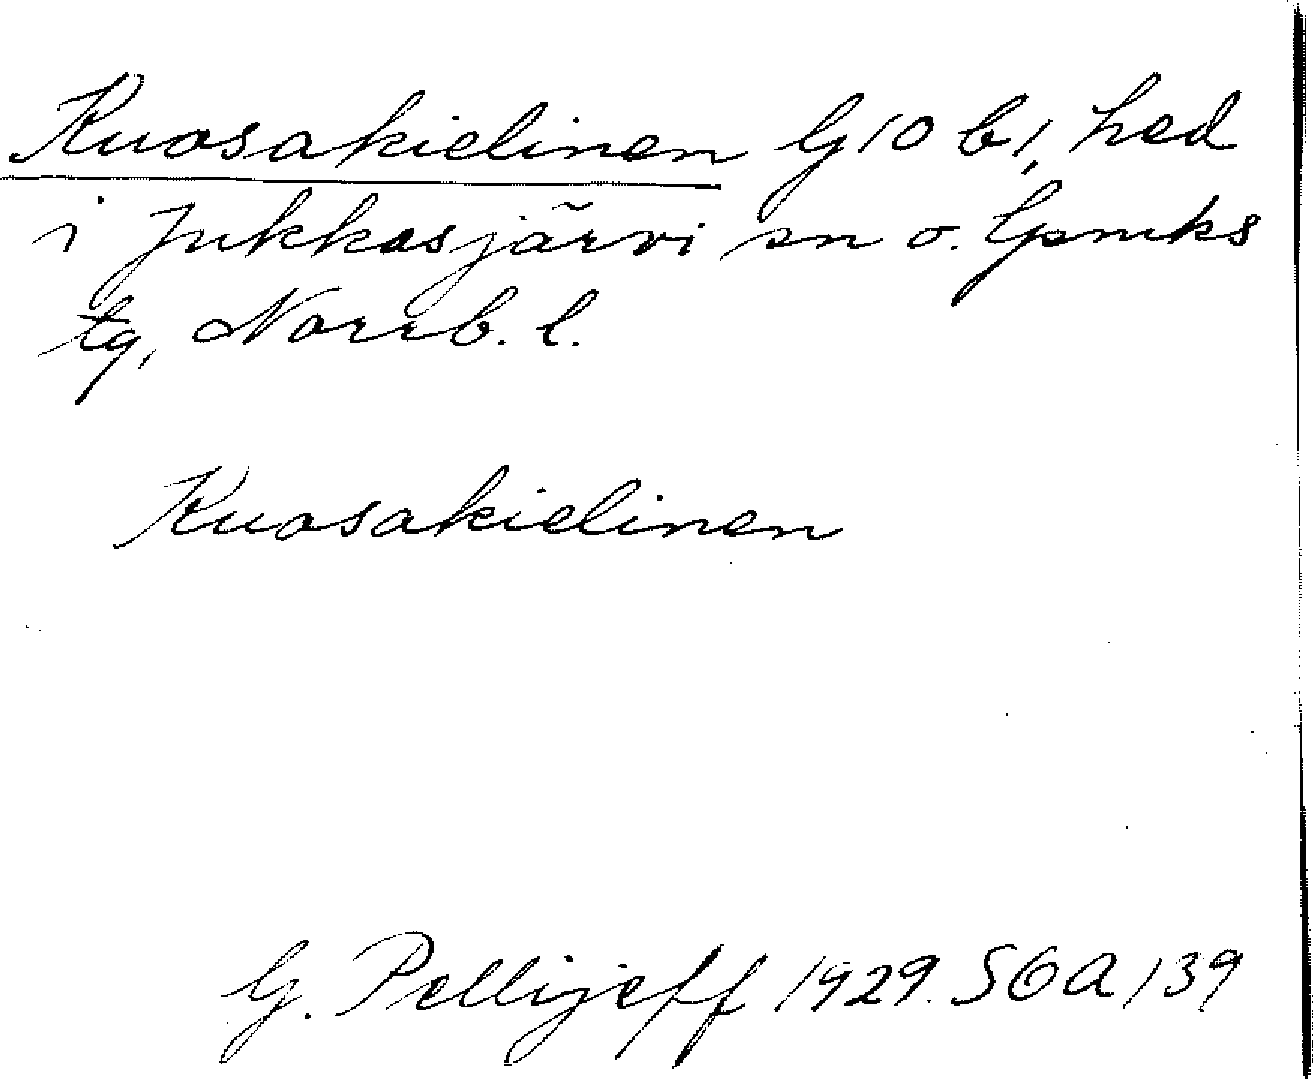 Kuosakielinen G10 b1, hed
i Jukkasjärvi sn o. Gpmks
tg, Norrb. l.
Kuosakielinen
G. Pellijeff 1929. SOA 139